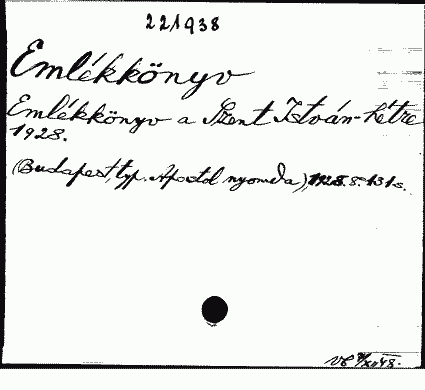 221938
Emlékkönyv
Emlékkönyv a Szent István-hétre
1928.
(Budapest, typ. Apostol nyomda), 1928. 8° 131 s.